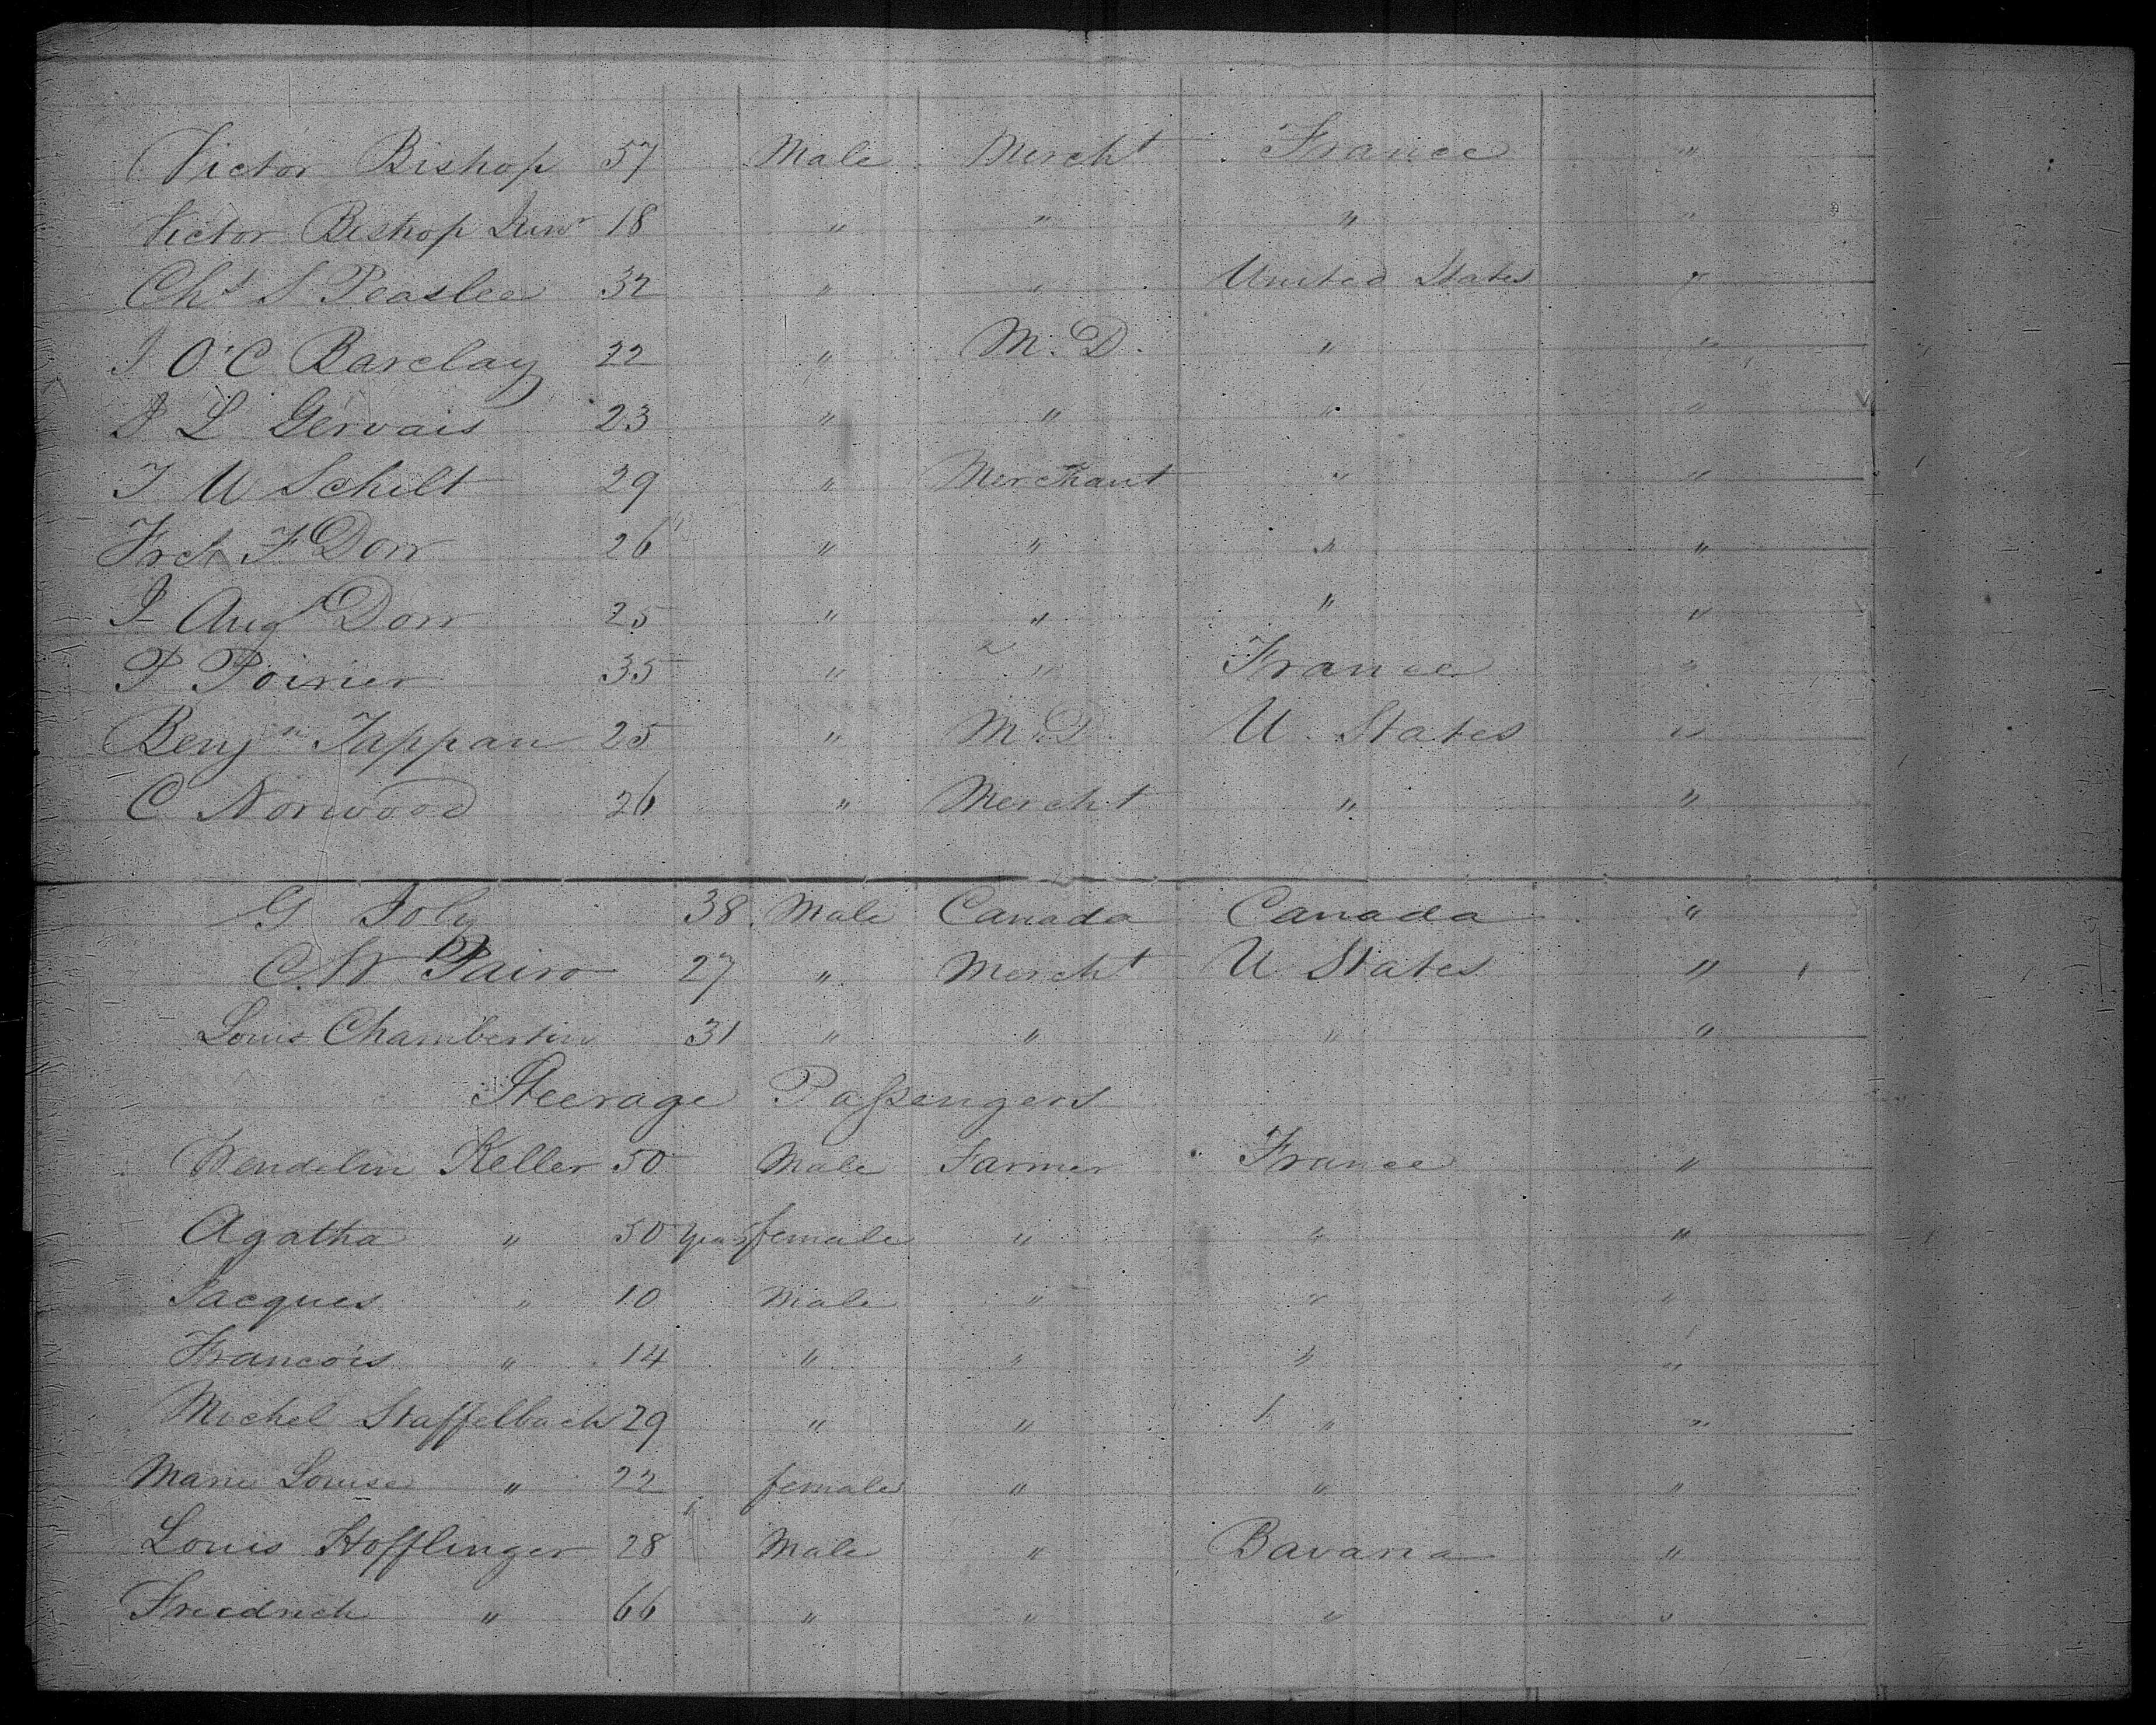 Victor Bishop 57 Male Mercht France "
Victor Bishop Junr 18 " " " "
Chs S Peaslee 32 " " United States "
J O'C Barclay 22 " M.D. " "
P L Gervais 23 " " " "
J W Schilt 29 " Merchant " "
Frck F Dorr 26 " " " "
J Aug Dorr 25 " " " "
P Poirier 35 " " France "
Benjn Tappan 25 " M.D. U. States "
C Norwood 26 " Mercht " "
G Joly 38 Male Canada Canada "
C. W Pairo 27 " Mercht U States "
Louis Chambertin 31 " " " "
Steerage Passengers
Bendelin Keller 50 Male Farmer France "
Agatha " 50 years female " " "
Jacques " 10 Male " " "
Francois " 14 " " " "
Michel Staffelbach 29 " " " "
Marie Louise " 22 female " " "
Louis Hofflinger 28 Male " Bavaria "
Friedrich " 66 " " " "